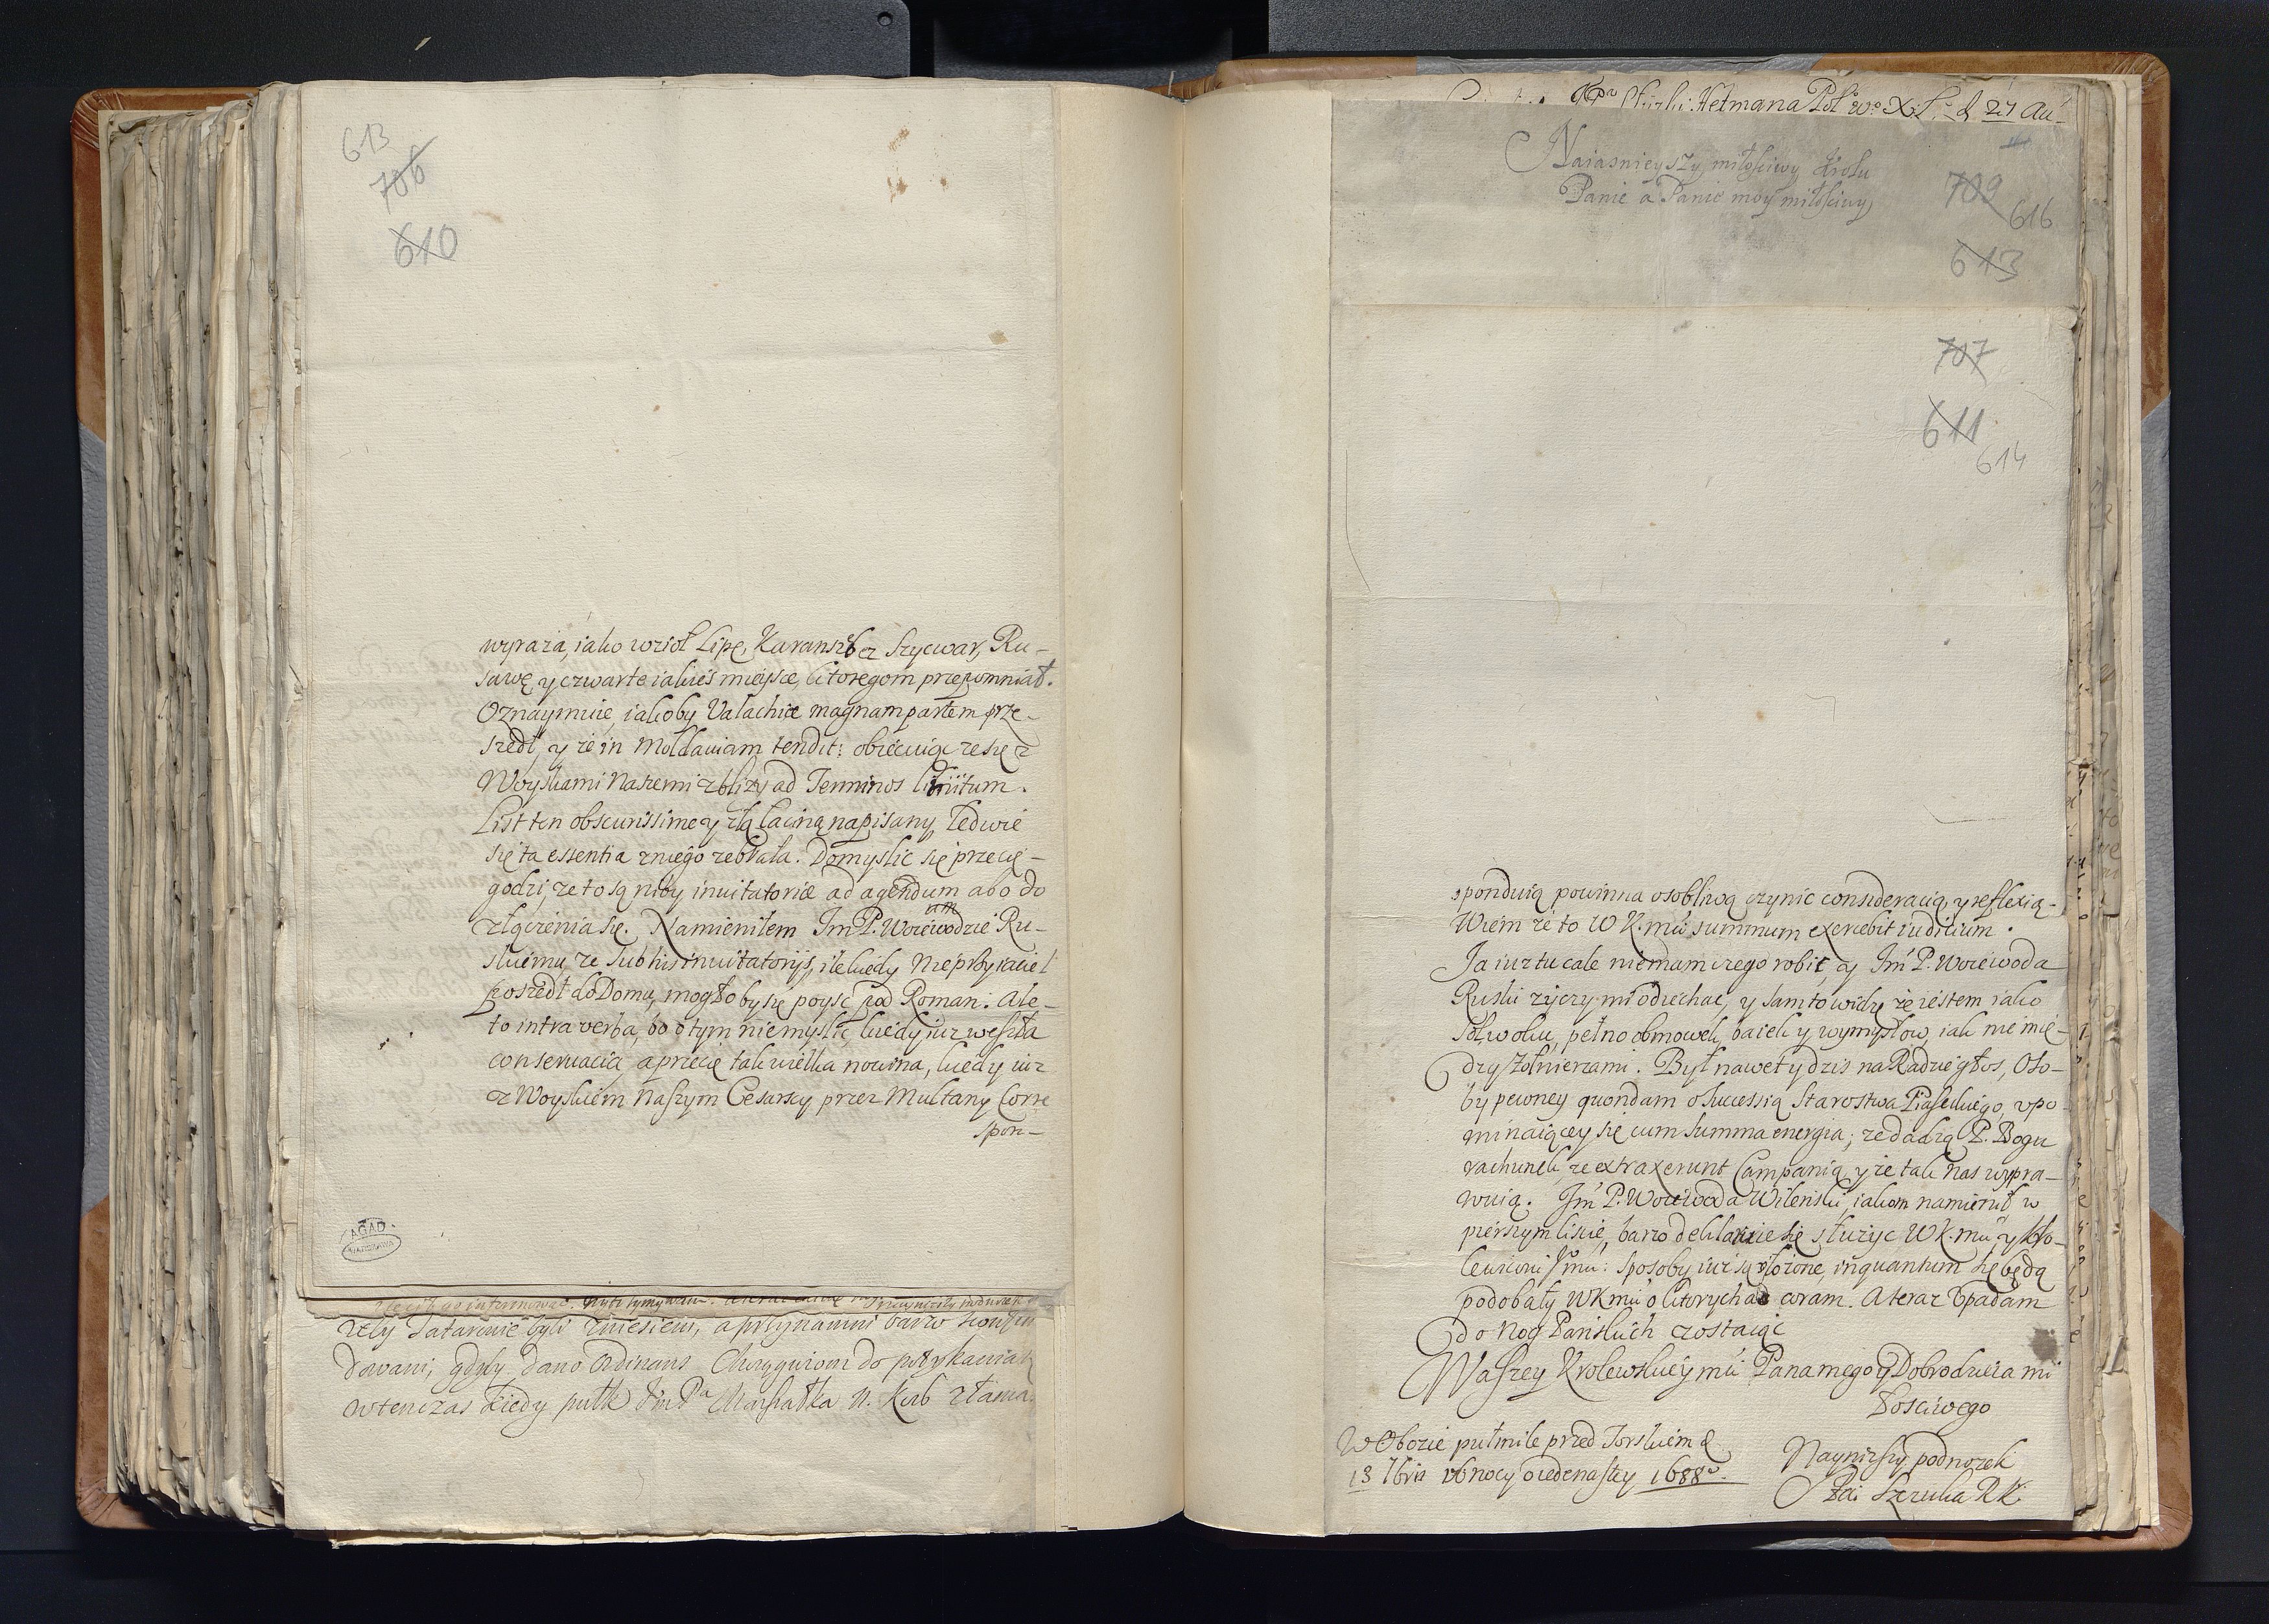 613
706
610
wyraza, iako wzioł Lipę, Karanszebez Szycwar, Ru-
sawę y czwarte iakieś mieysce, ktoregom przepomniał.
Oznaymuie, iakoby Valachiæ magnam partem prze-
szedł, y ze in Moldauiam tendit: obiecuiąc ze się z
Woyskami naszemi zblizy ad Terminos limitum.
List ten obscurissime y złą łaciną napisany, ledwie
się ta essentia z niego zebrała. Domyslic się przecię
godzi, ze to są niby inuitatoriæ ad agendum abo do
złączenia się. Namieniłem Im P. Woiewodzie Ru-
skiemu, ze sub his inuitatorijs, ile kiedy Nieprzyiaciel
poszedł do Domu, mogłoby się poyść pod Roman. Ale
to intra verba, bo o tym nie myslic, kiedy iuz weszła
conseruacia, a przecię tak wielka nowina, kiedy iuz
z Woyskiem Naszym Cesarscy przez Multany Corre
spon-
AGAD
WARSZAWA
zely Tatarowie byli zniesieni, a przynamni barzo
dowani; gdyby dano Ordinans Chorągwiom do potykania
wtenczas kiedy pułk Im Pa Marszałka N. Kor złama
Hetmana Pol: Wo X. L. d 27 Au-
Naiasnieyszy miłościwy Krolu
Panie a Panie moy miłościwy
709
616
613
707
611
614
sponduią powinna osobliwą czynic consideracią y reflexią.
Wiem ze to W K. mći summum exercebit iudicium.
Ja iuz tu cale nie mam czego robić, y Im P. Woiewoda
Ruski zyczy mi odiechac, y sam to widzę że iestem iako
sol w oku, pełno obmowek, baiek y wymysłow, iak nie mię-
dzy Zołnierzami. Był nawet y dzis na Radzie głos, Oso-
by pewney quondam o Successią Starostwa Piaseckiego, vpo
minaiącey się cum summa energia; ze dadzą P. Bogu
rachunek, ze extraxerunt Campanią, y ze tak nas wypra-
wuią. Im P. Woiewoda Wilenski, iakom namienił w
pierszym liscie, barzo deklaruie się słuzyc W K. mći y Kro-
lewiconi Jmći: sposoby iuz są ułozone, inquantum się będą
podobały W K mći o ktorych ad coram. A teraz Vpadam
do Nog Panskich zostaiąc
Waszey Krolewskiey mći Pana mego y Dobrodzieia mi
łosciwego
W Obozie pułmile przed Jorskiem d
13 7bris w nocy o iedenastey 1688o.
Nayniższy podnozek
Szczuka R K